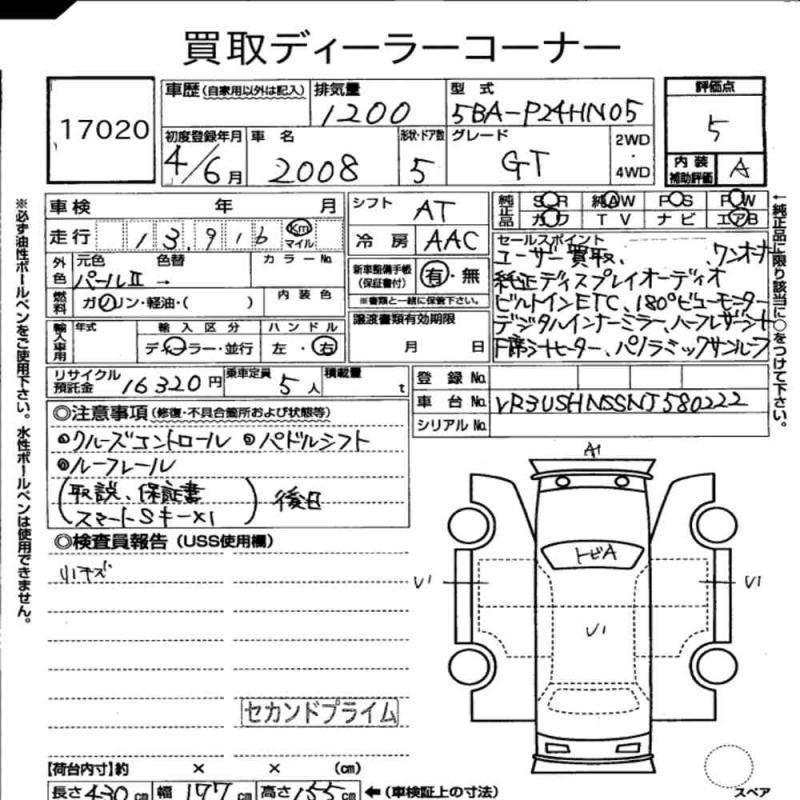 買取ディーラーコーナー
17020
車歴 (自家用以外は記入) 排気量 型式 評価点
1200 5BA-P24HN05 5
初度登録年月 車名 形状・ドア数 グレード 2WD・4WD 内装補助評価
4/6月 2008 5 GT A
車検 年 月 シフト AT 純正品 SR 純AW PS PW
カワ TV ナビ エアB
走行 13,916 Km マイル 冷房 AAC
セールスポイント
ユーザー買取、 ワンオーナー
純正ディスプレイオーディオ
ビルトインETC、180°ビューモニター
デジタルインナーミラー、ハーフレザーシート
F席シートヒーター、パノラミックサンルーフ
外色 元色 色替 カラーNo.
パールⅡ →
新車整備手帳(保証書付) 有・無
※書類と一緒に保管下さい。
燃料 ガソリン・軽油・( ) 内装色
輸入車用 年式 輸入区分 ハンドル
ディーラー・並行 左・右
譲渡書類有効期限
月 日
リサイクル預託金 16320円 乗車定員 5人 積載量 t
登録No.
車台No. VR3USHNSSNJ580222
シリアルNo.
◎注意事項 (修復・不具合箇所および状態等)
◎クルーズコントロール ◎パドルシフト
◎ルーフレール
(取説、保証書
スマートSキー×1) 後日
◎検査員報告 (USS使用欄)
小キズ
セカンドプライム
A1
トビA
U1
U1
U1
スペア
【荷台内寸】約 × × (cm)
長さ430cm 幅177cm 高さ155cm ←(車検証上の寸法)
※必ず油性ボールペンをご使用下さい。水性ボールペンは使用できません。
←純正品に限り該当に○をつけて下さい。